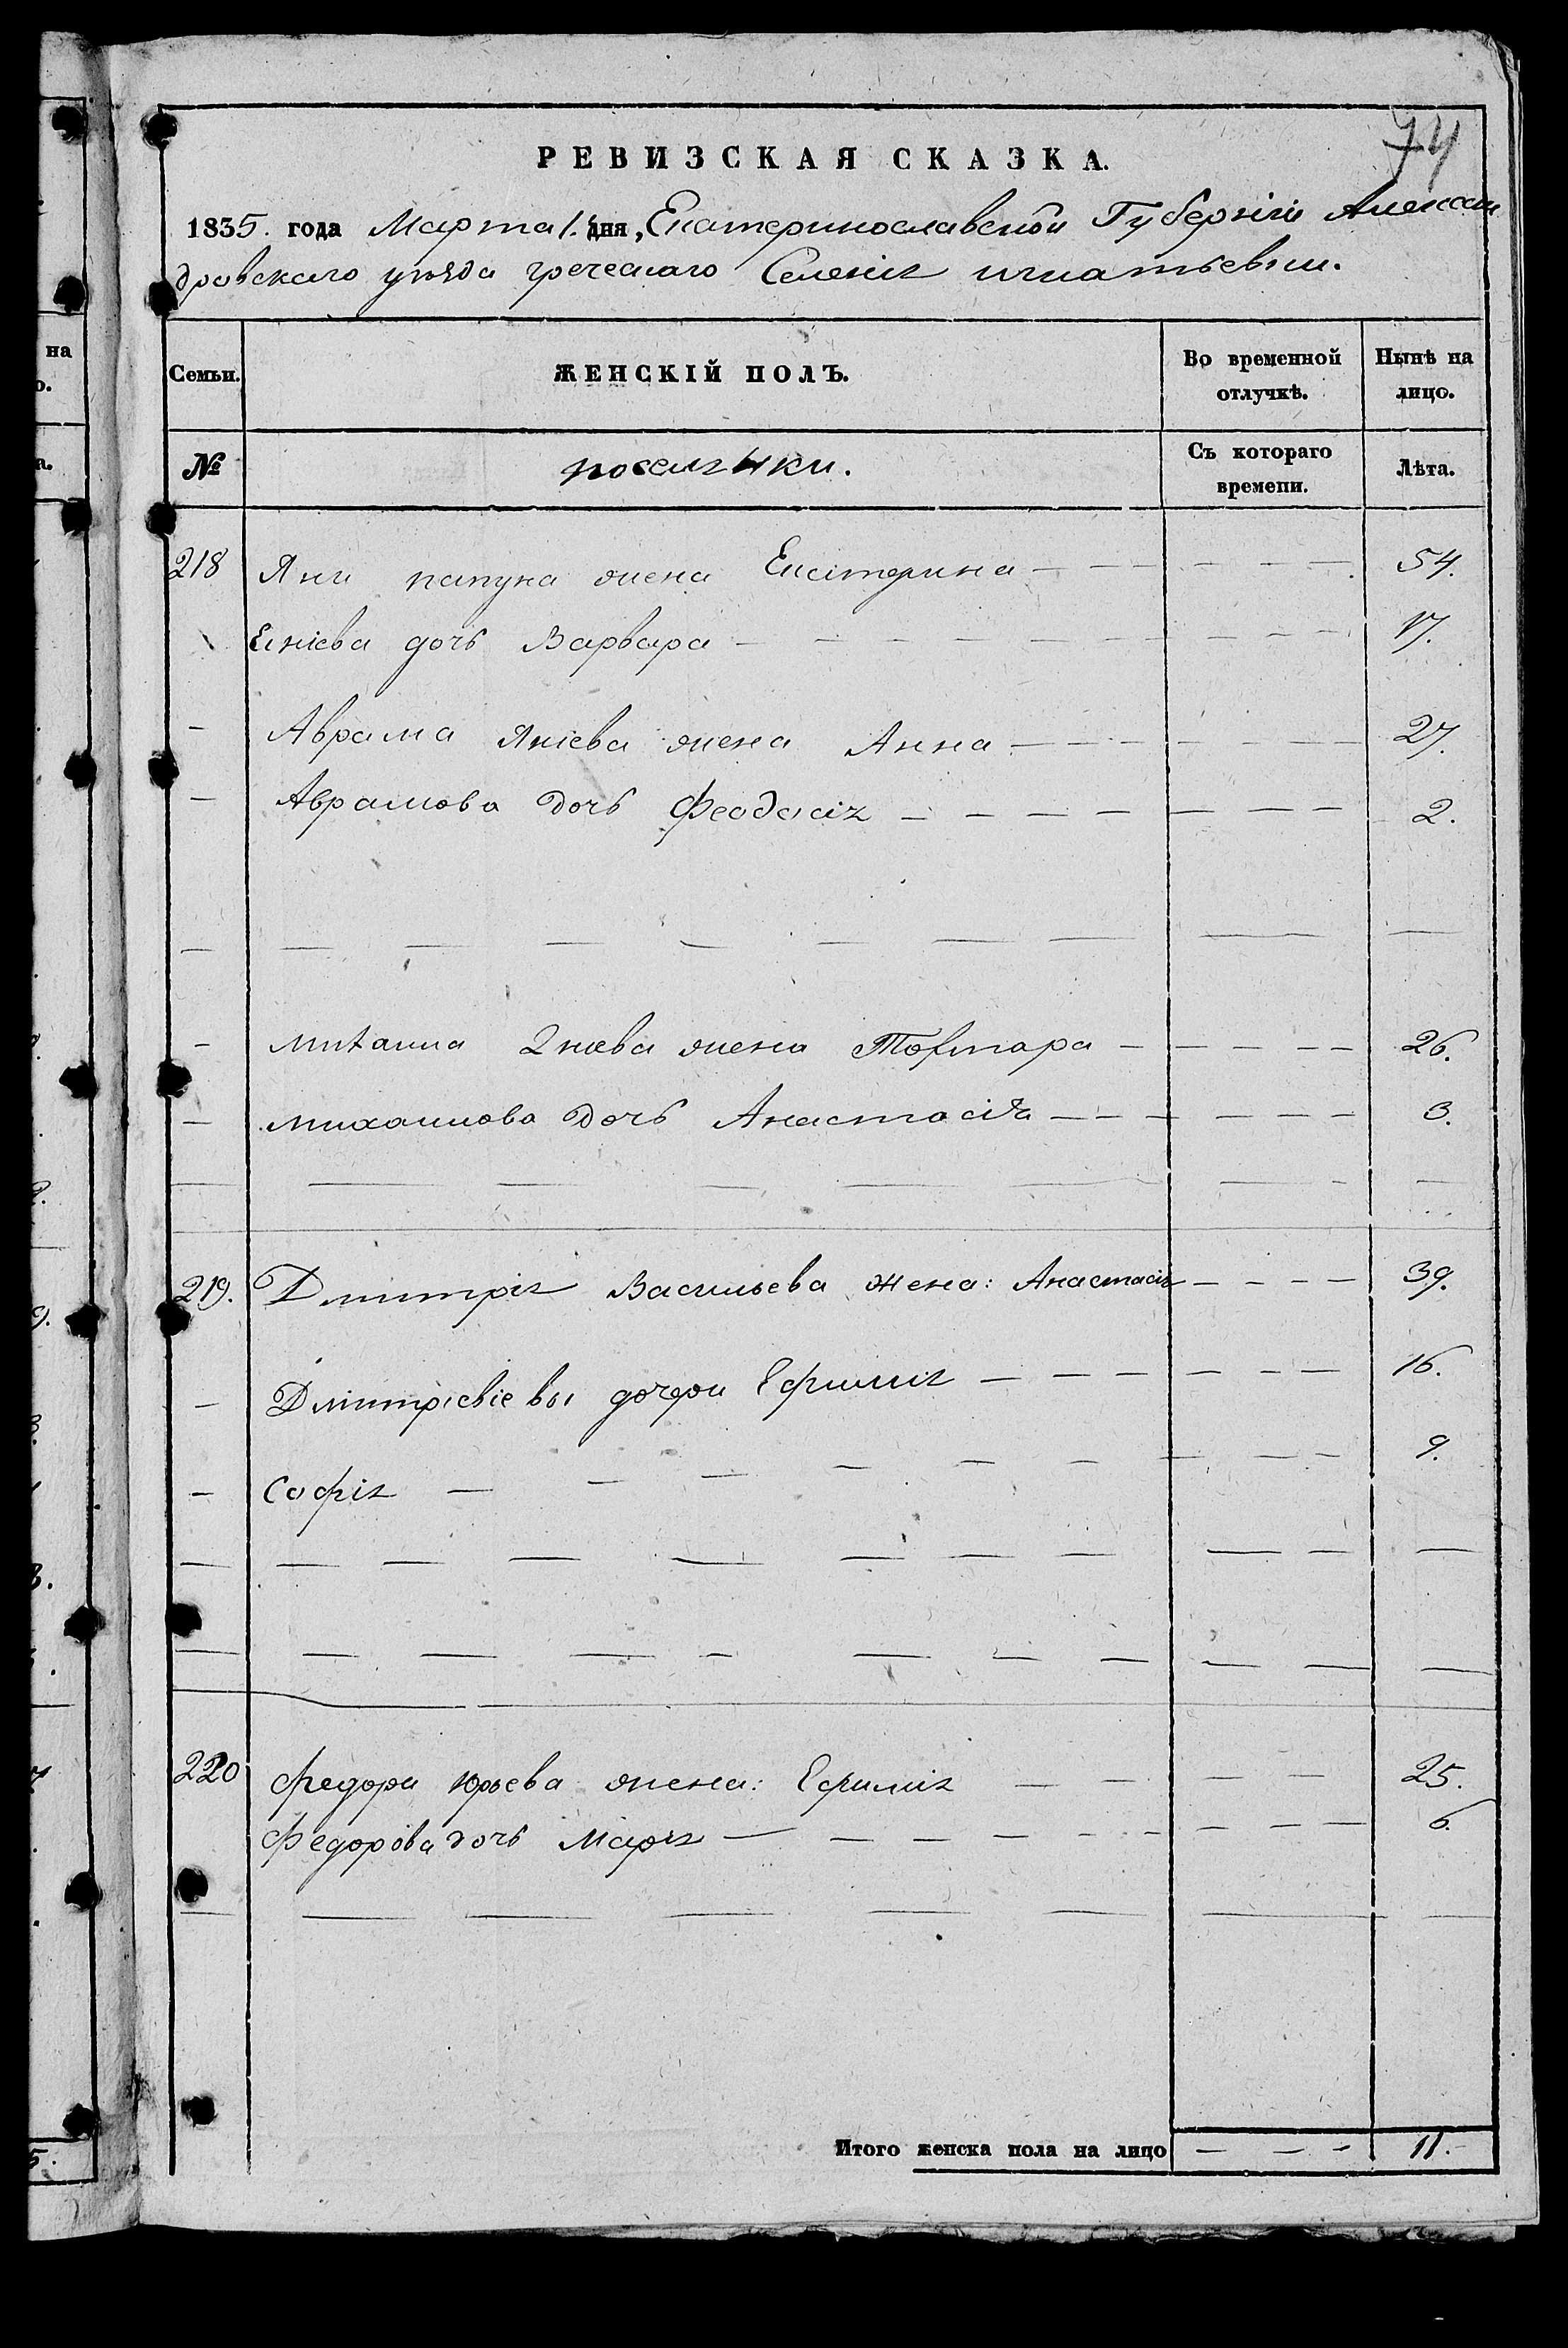 74
РЕВИЗСКАЯ СКАЗКА.
1835. года Марта 1. дня, Екатеринославской Губерніи Алексан
дровскаго уѣзда греческаго Селенія игнатьевки.
Семьи. ЖЕНСКІЙ ПОЛЪ. Во временной отлучкѣ. Нынѣ на лицо.
№ поселянки. Съ котораго времени. Лѣта.
218 Яни папуна жена Екатерина — — — — — — 54.
Еніева дочь Варвара — — — — — — — — 17.
— Аврама Яніева жена Анна — — — — — — 27.
— Аврамова дочь Феодосія — — — — — — 2.
— Михаила Яніева жена — — — — — 26.
— Михаилова дочь Анастасія — — — — — — 3.
219. Дмитрія Васильева жена: Анастасія — — — — 39.
— Дмитріевіевы дочери Ефимія — — — — — — 16.
— Софія — — — — — — — — — 9.
220 Федора Юрьева жена: Ефимія — — — — 25.
Федорова дочь Марія — — — — — — — — 6.
Итого женска пола на лицо — — — 11.